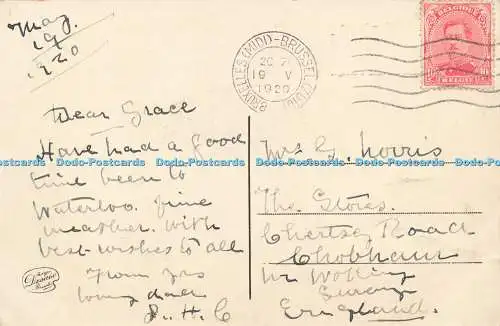 May
19
1920
Dear Grace
Have had a good
time been to
Waterloo. fine
weather. With
best wishes to all
From yrs
J. H. C
Mrs G. Norris
The Stores.
Chertsey Road
Chobham
Nr Woking
Surrey
England.
BRUXELLES (MIDI) - BRUSSEL (ZUID)
19 V
1920
BELGIQUE
BELGIE
10
Dodo-Postcards Dodo-Postcards Dodo-Postcards Dodo-Postcards Dodo-Postcards